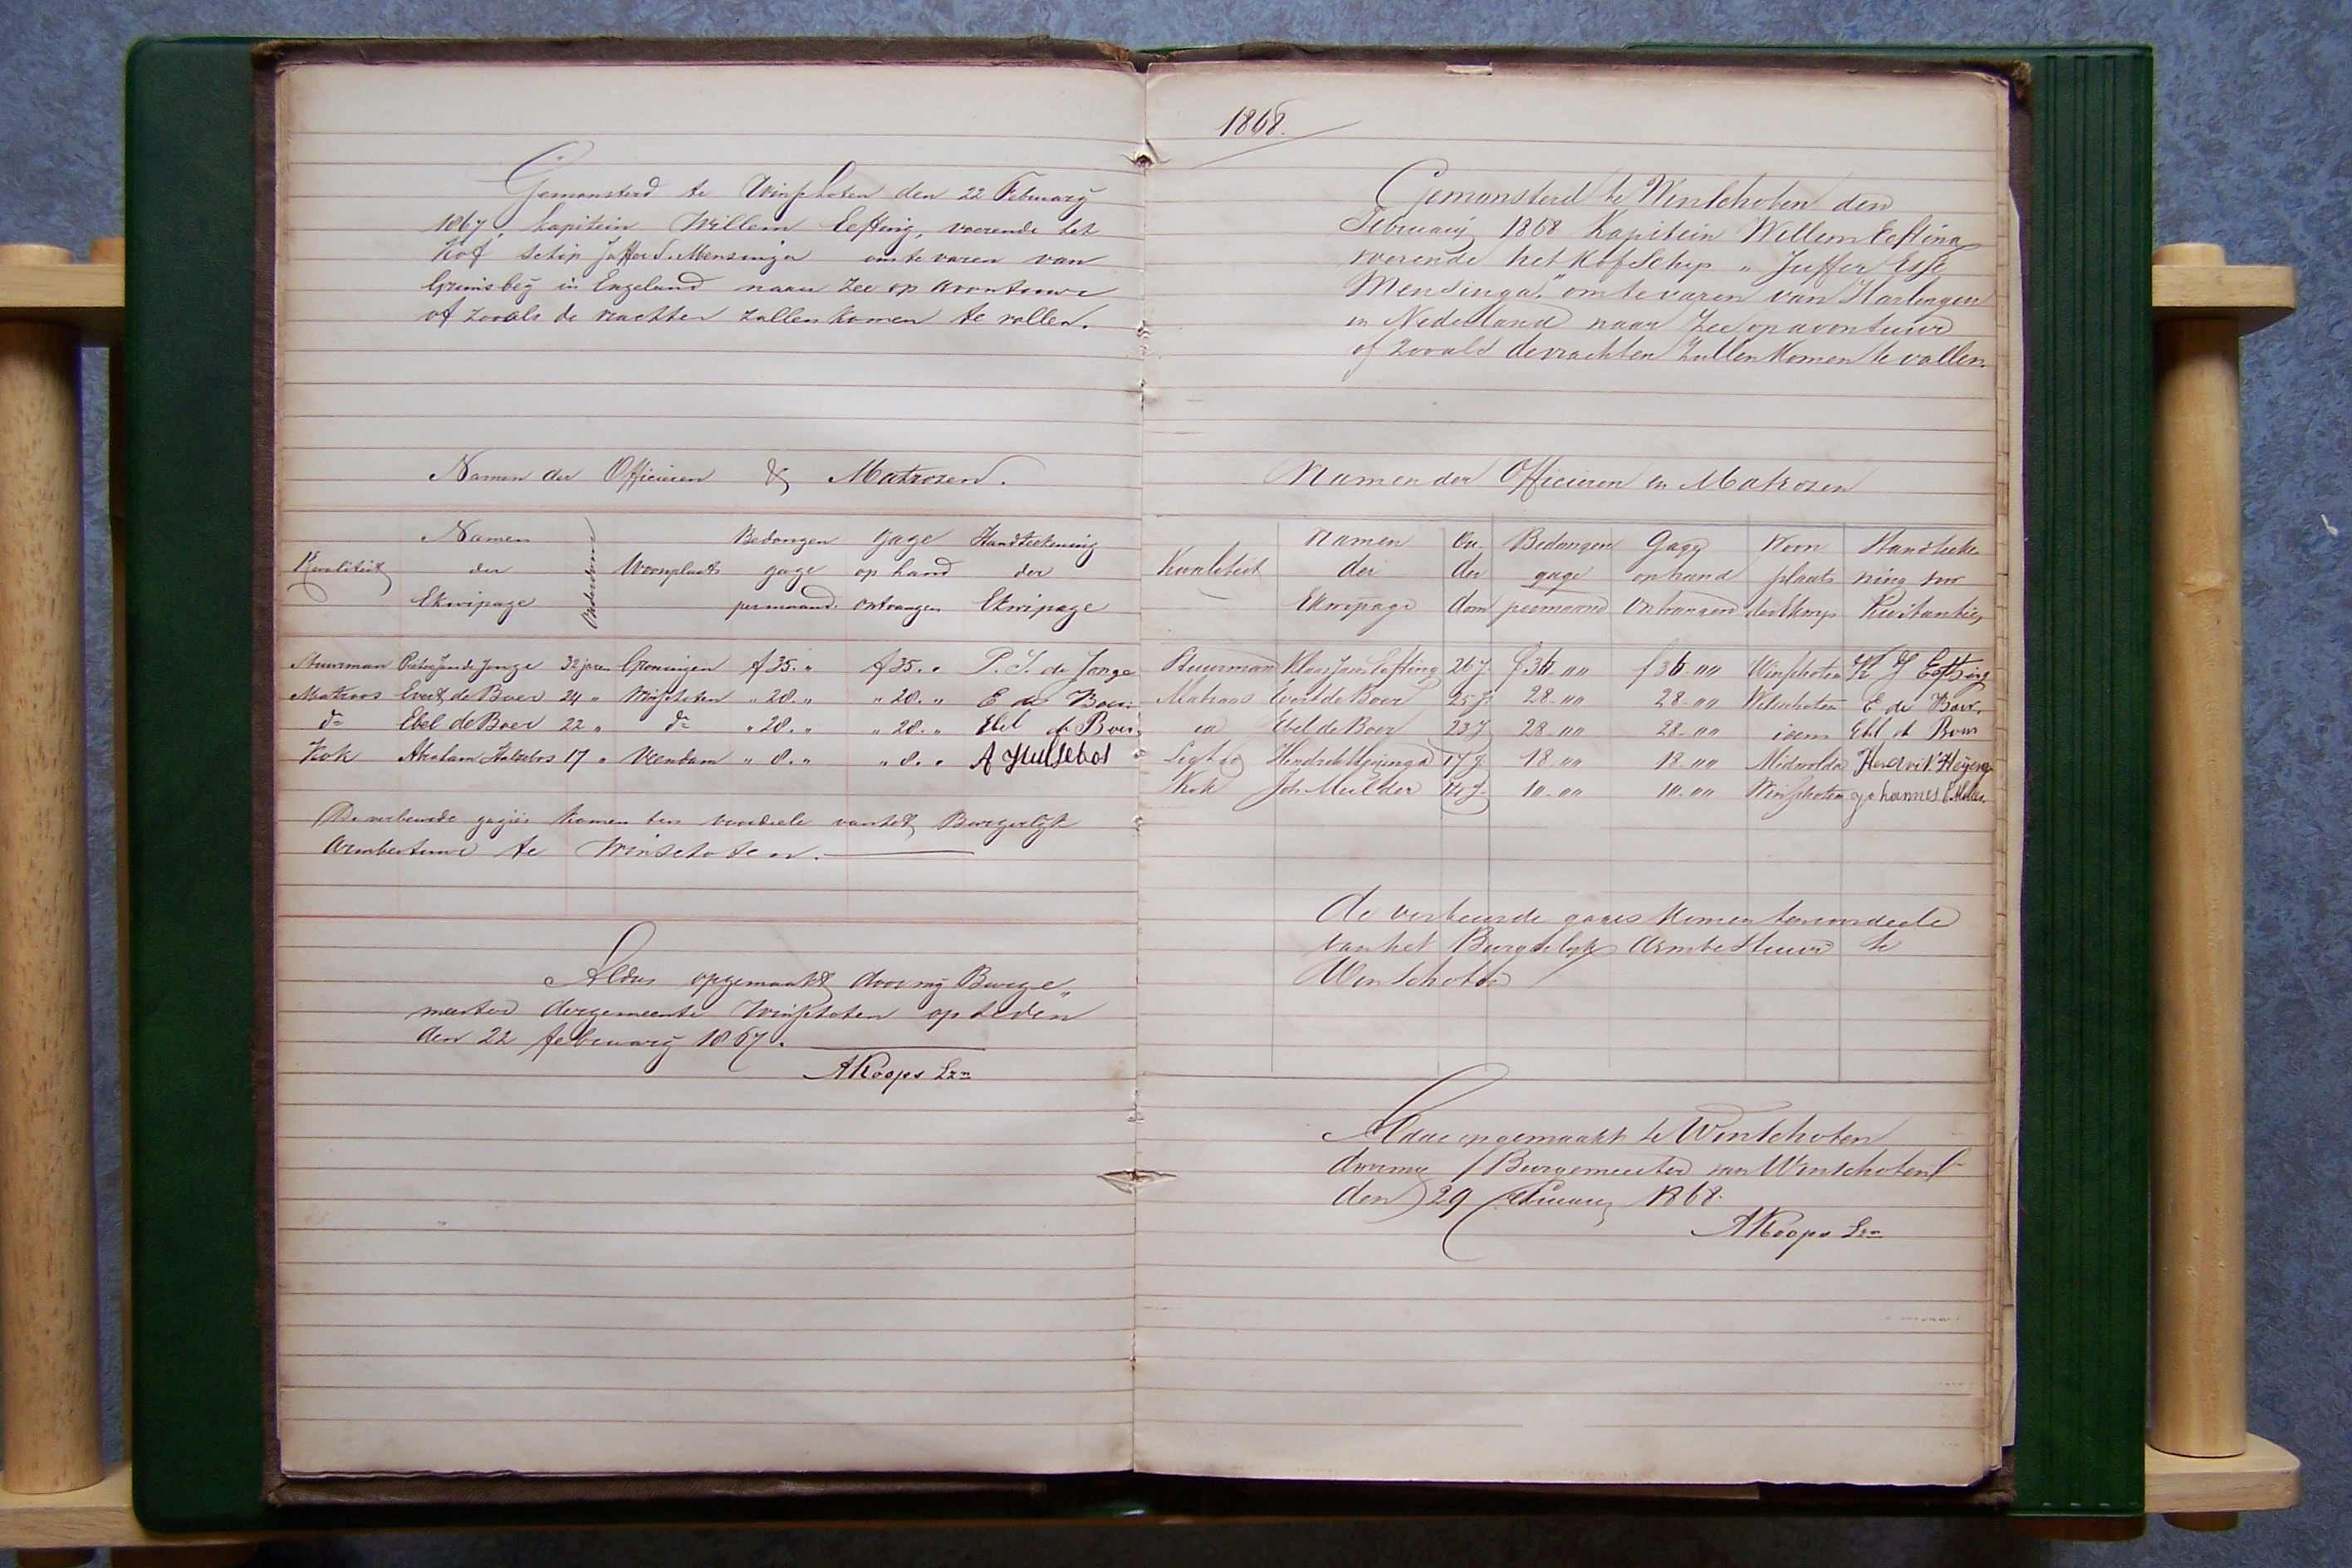 Gemonsterd te Winschoten den 22 February
1867, kapitein Willem Eefting, voerende het
Kof schip Juffer S. Mensinga om te varen van
Grimsbey in Engeland naar Zee op avontuur
of zooals de vrachten zullen komen te vallen.
Namen der Officieren & Matrozen.
Kwaliteit Namen der Ekwipage Ouderdom Woonplaats Bedongen gage per maand. gage op hand ontvangen Handteekening der Ekwipage
Stuurman Pieter Jan de Jonge 32 jaren Groningen f 35. " f 35. " P. J. de Jonge
Matroos Evert de Boer 24 " Winschoten " 28. " " 28. " E de Boer.
do Ebel de Boer 22 " do " 28. " " 28. " Ebel de Boer.
Kok Abraham Hulsebos 17 " Veendam " 8. " " 8. " A Hulsebos
De verbeurde gagiën komen ten voordeele van het Burgerlijk
Armbestuur te Winschoten.
Aldus opgemaakt door mij Burge„
meester der gemeente Winschoten op heden
den 22 february 1867.
A Koops Lzn
1868.
Gemonsterd te Winschoten den
February 1868 Kapitein Willem Eefting
voerende het Kofschip „ Juffer
Mensinga." om te varen van Harlingen
in Nederland naar Zee op avontuur
of zooals de vrachten zullen komen te vallen.
Namen der Officieren en Matrozen
Kwaliteit Namen der Ekwipage Ou der dom Bedongen gage per maand Gage op hand ontvangen Woon plaats der Ekwip Handteeke ning voor Kwitantie
Stuurman Klaas Jans Eefting 26 J. f. 36 "" f 36. "" Winschoten K J Eefting
Matroos Evert de Boer 25 J. 28 - "" 28 - "" Winschoten E de Boer.
id Ebel de Boer 23 J 28 - "" 28 - "" idem Ebel de Boer
Ligt do Hendrik Heijenga 17 J. 18 - "" 18 - "" Midwolda Hendrik Heijenga
Kok Joh. Mulder J. 10 - "" 10 - "" Winschoten Johannes Mulder
de verbeurde gages komen ten voordeele
van het Burgerlijk Armbestuur te
Winschoten
Aldus opgemaakt te Winschoten
door mij Burgemeester van Winschoten
den 29 February 1868.
A Koops Lzn